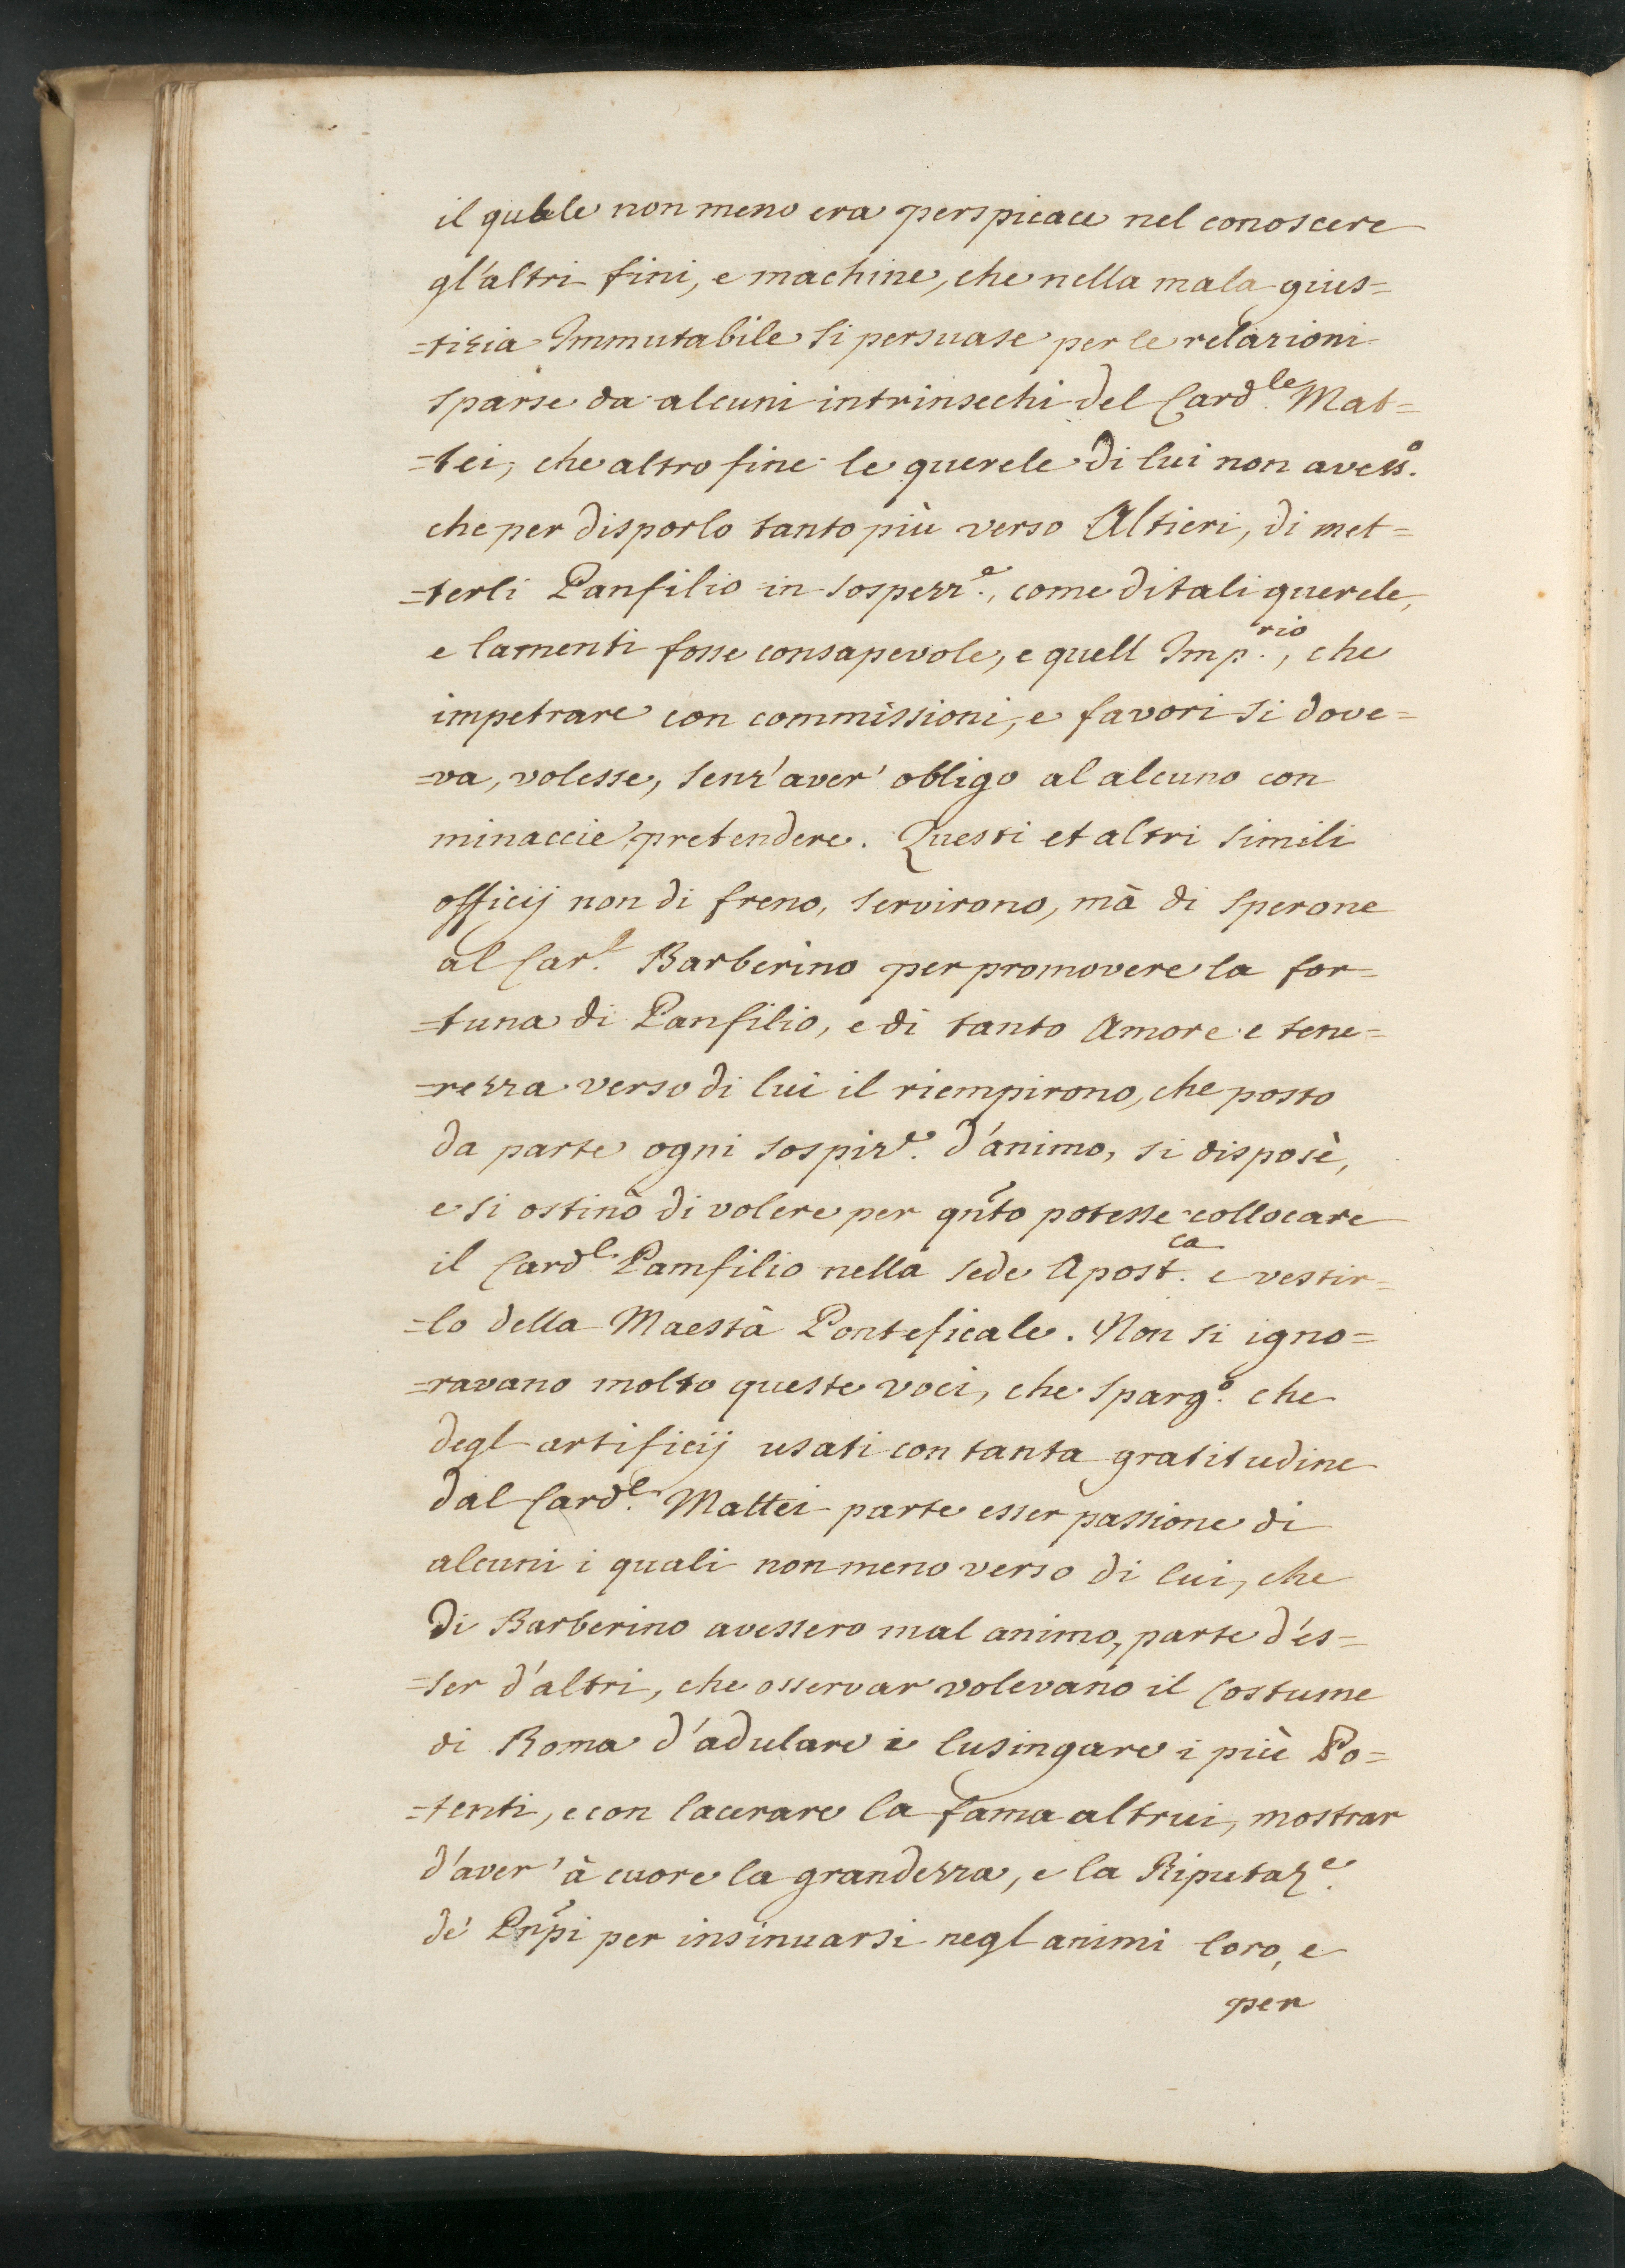 il quale non meno era perspicace nel conoscere
gl'altri fini, e machine, che nella mala gius=
=tizia Immutabile si persuase per le relazioni
sparse da alcuni intrinsechi del Card.le Mat=
=tei, che altro fine le querele di lui non avess.o
che per disporlo tanto più verso Altieri, di met=
=terli Panfilio in sospezz.e, come di tali querele,
e lamenti fosse consapevole, e quell Imp.rio, che
impetrare con commissioni, e favori si dove=
=va, volesse, senz'aver' obligo al alcuno con
minaccie pretendere. Questi et altri simili
officij non di freno, servirono, mà di sperone
al Car.l Barberino per promovere la for=
=tuna di Panfilio, e di tanto Amore e tene=
=rezza verso di lui il riempirono, che posto
da parte ogni sospiz.e d'animo, si disposè,
e si ostinò di volere per qñto potesse collocare
il Card.l Pamfilio nella sede Apost.ca e vestir=
=lo della Maestà Ponteficale. Non si igno=
=ravano molto queste voci, che sparg.o che
degl artificij usati con tanta gratitudine
dal Card.l Mattei parte esser passione di
alcuni i quali non meno verso di lui, che
di Barberino avessero mal animo, parte d'es=
=ser d'altri, che osservar volevano il costume
di Roma d'adulare e lusingare i più Po=
=tenti, e con lacerare la fama altrui, mostrar
d'aver' à cuore la grandezza, e la Riputaz.e
de' Pñpi per insinuarsi negl animi loro, e
per